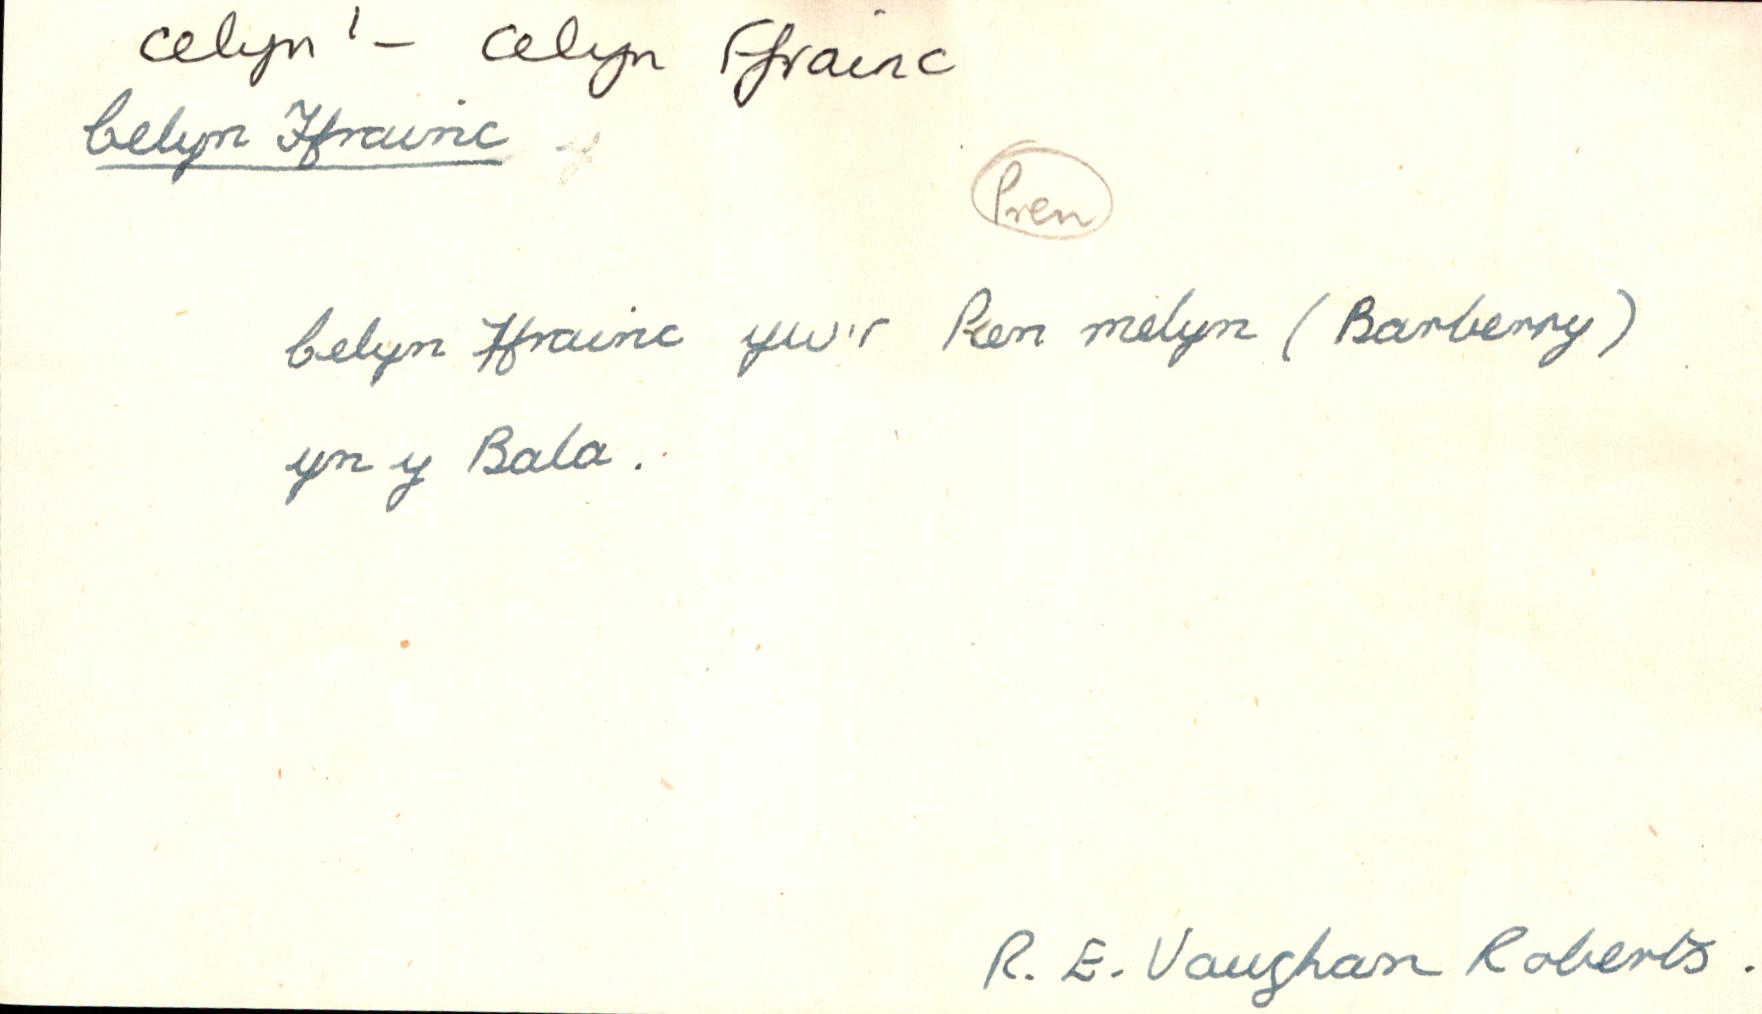 celyn¹ - celyn Ffrainc
Celyn Ffrainc
Pren
Celyn Ffrainc yw'r Pren melyn (Barberry)
yn y Bala.
R. E. Vaughan Roberts.